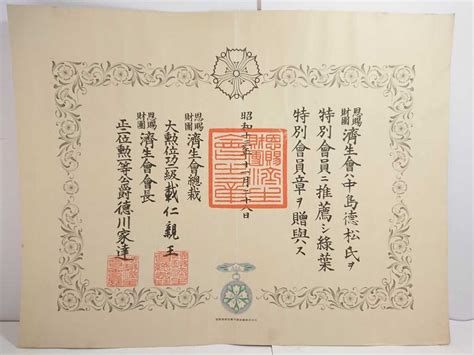 恩賜財團濟生會ハ中島德松氏ヲ
特別會員ニ推薦シ綠葉
特別會員章ヲ贈與ス
昭和十三年十二月二十八日
恩賜財團濟生會總裁
大勲位功一級載仁親王
恩賜財團濟生會會長
正二位勲一等公爵德川家達